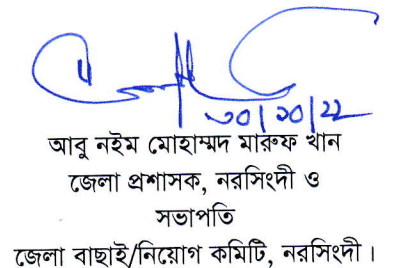 ৩০/১০/২২
আবু নইম মোহাম্মদ মারুফ খান
জেলা প্রশাসক, নরসিংদী ও
সভাপতি
জেলা বাছাই/নিয়োগ কমিটি, নরসিংদী।